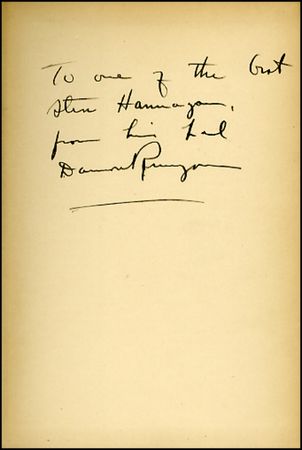 To one of the best
Steve Hannagan,
from his pal
Damon Runyon